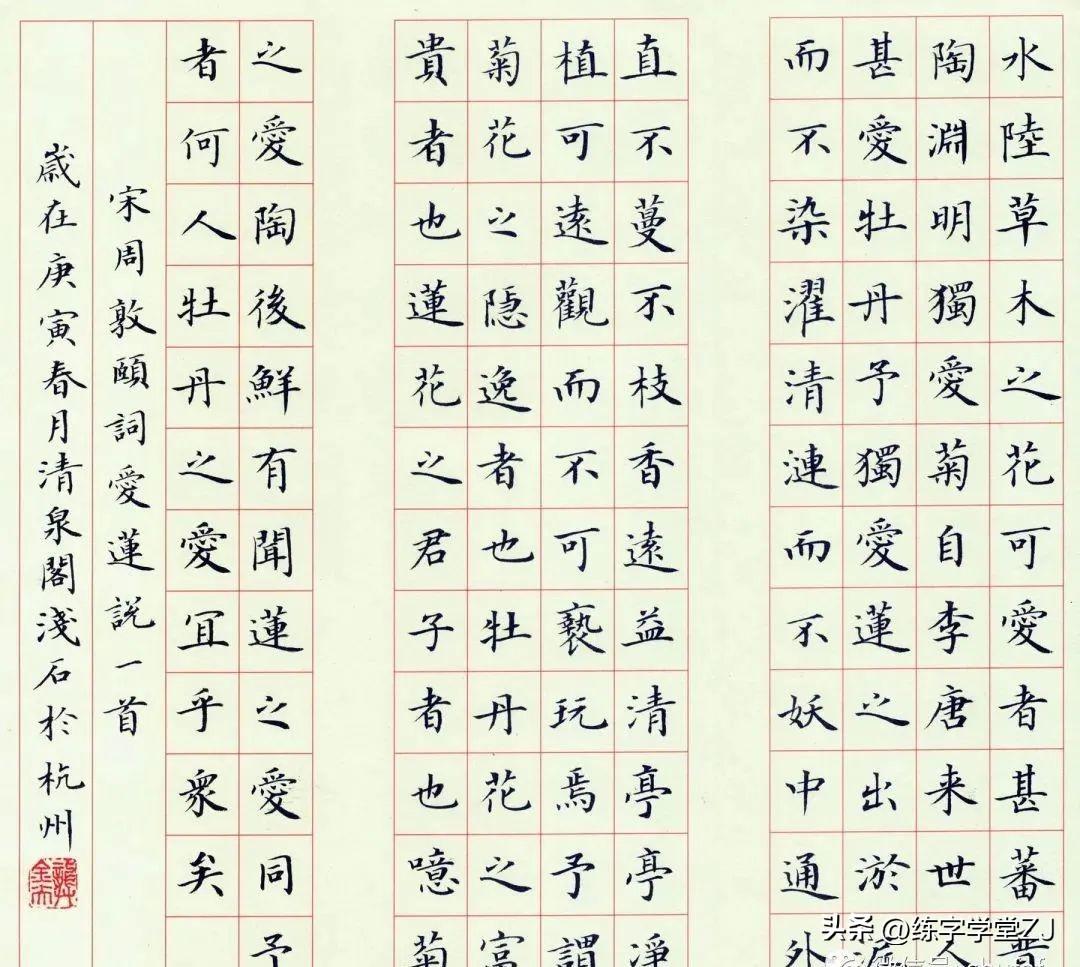 水陸草木之花可愛者甚蕃晉
陶淵明獨愛菊自李唐来世人
甚愛牡丹予獨愛蓮之出淤泥
而不染濯清漣而不妖中通外
直不蔓不枝香遠益清亭亭淨
植可遠觀而不可褻玩焉予謂
菊花之隱逸者也牡丹花之富
貴者也蓮花之君子者也噫菊
之愛陶後鮮有聞蓮之愛同予
者何人牡丹之愛宜乎衆矣
宋周敦頤詞愛蓮説一首
歲在庚寅春月清泉閣淺石於杭州
头条 @练字学堂ZJ